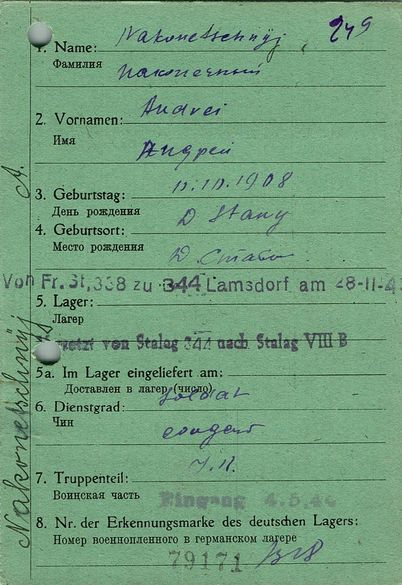 249
1. Name: Nakonetschnyj
Фамилия
Наконечный
2. Vornamen: Andrei
Имя
Андрей
3. Geburtstag: 11.10.1908
День рождения
4. Geburtsort: D.
Место рождения
Д.
Von Fr. St. 338 zu 344 Lamsdorf am 28-11-4
5. Lager:
Лагерь
von Stalag 344 nach Stalag VIII B
5a. Im Lager eingeliefert am:
Доставлен в лагерь (число)
6. Dienstgrad: Soldat
Чин
солдат
7. Truppenteil: J.R.
Воинская часть
Eingang 4.5.44
8. Nr. der Erkennungsmarke des deutschen Lagers:
Номер военнопленного в германском лагере
79171
Nakonetschnyj A.